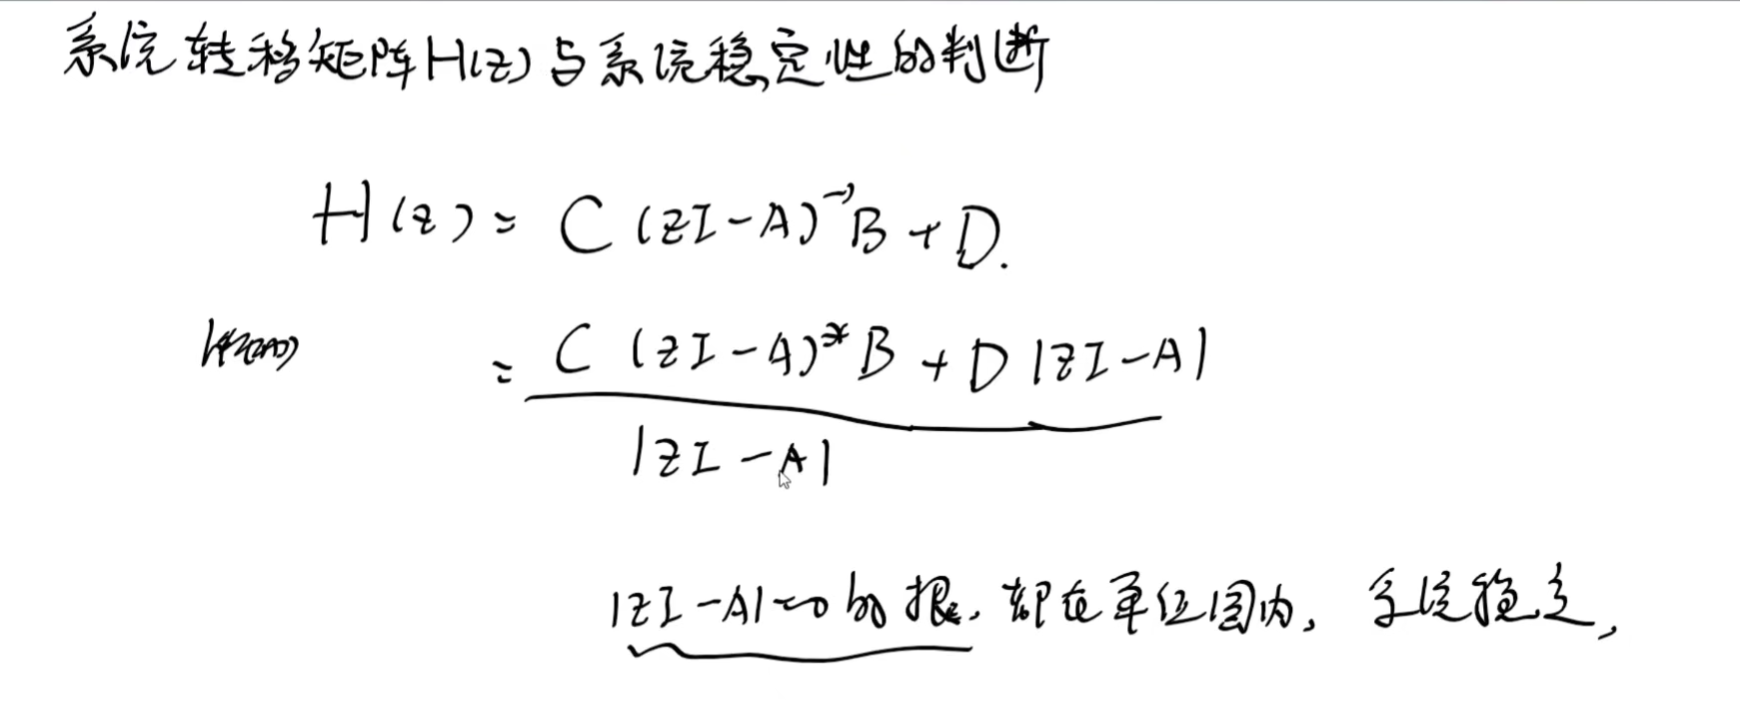 系统转移矩阵H(z)与系统稳定性的判断
H(z) = C(zI-A)⁻¹B+D.
= C(zI-A)*B+D|zI-A|
|zI-A|
|zI-A|=0的根,都在单位圆内,系统稳定,